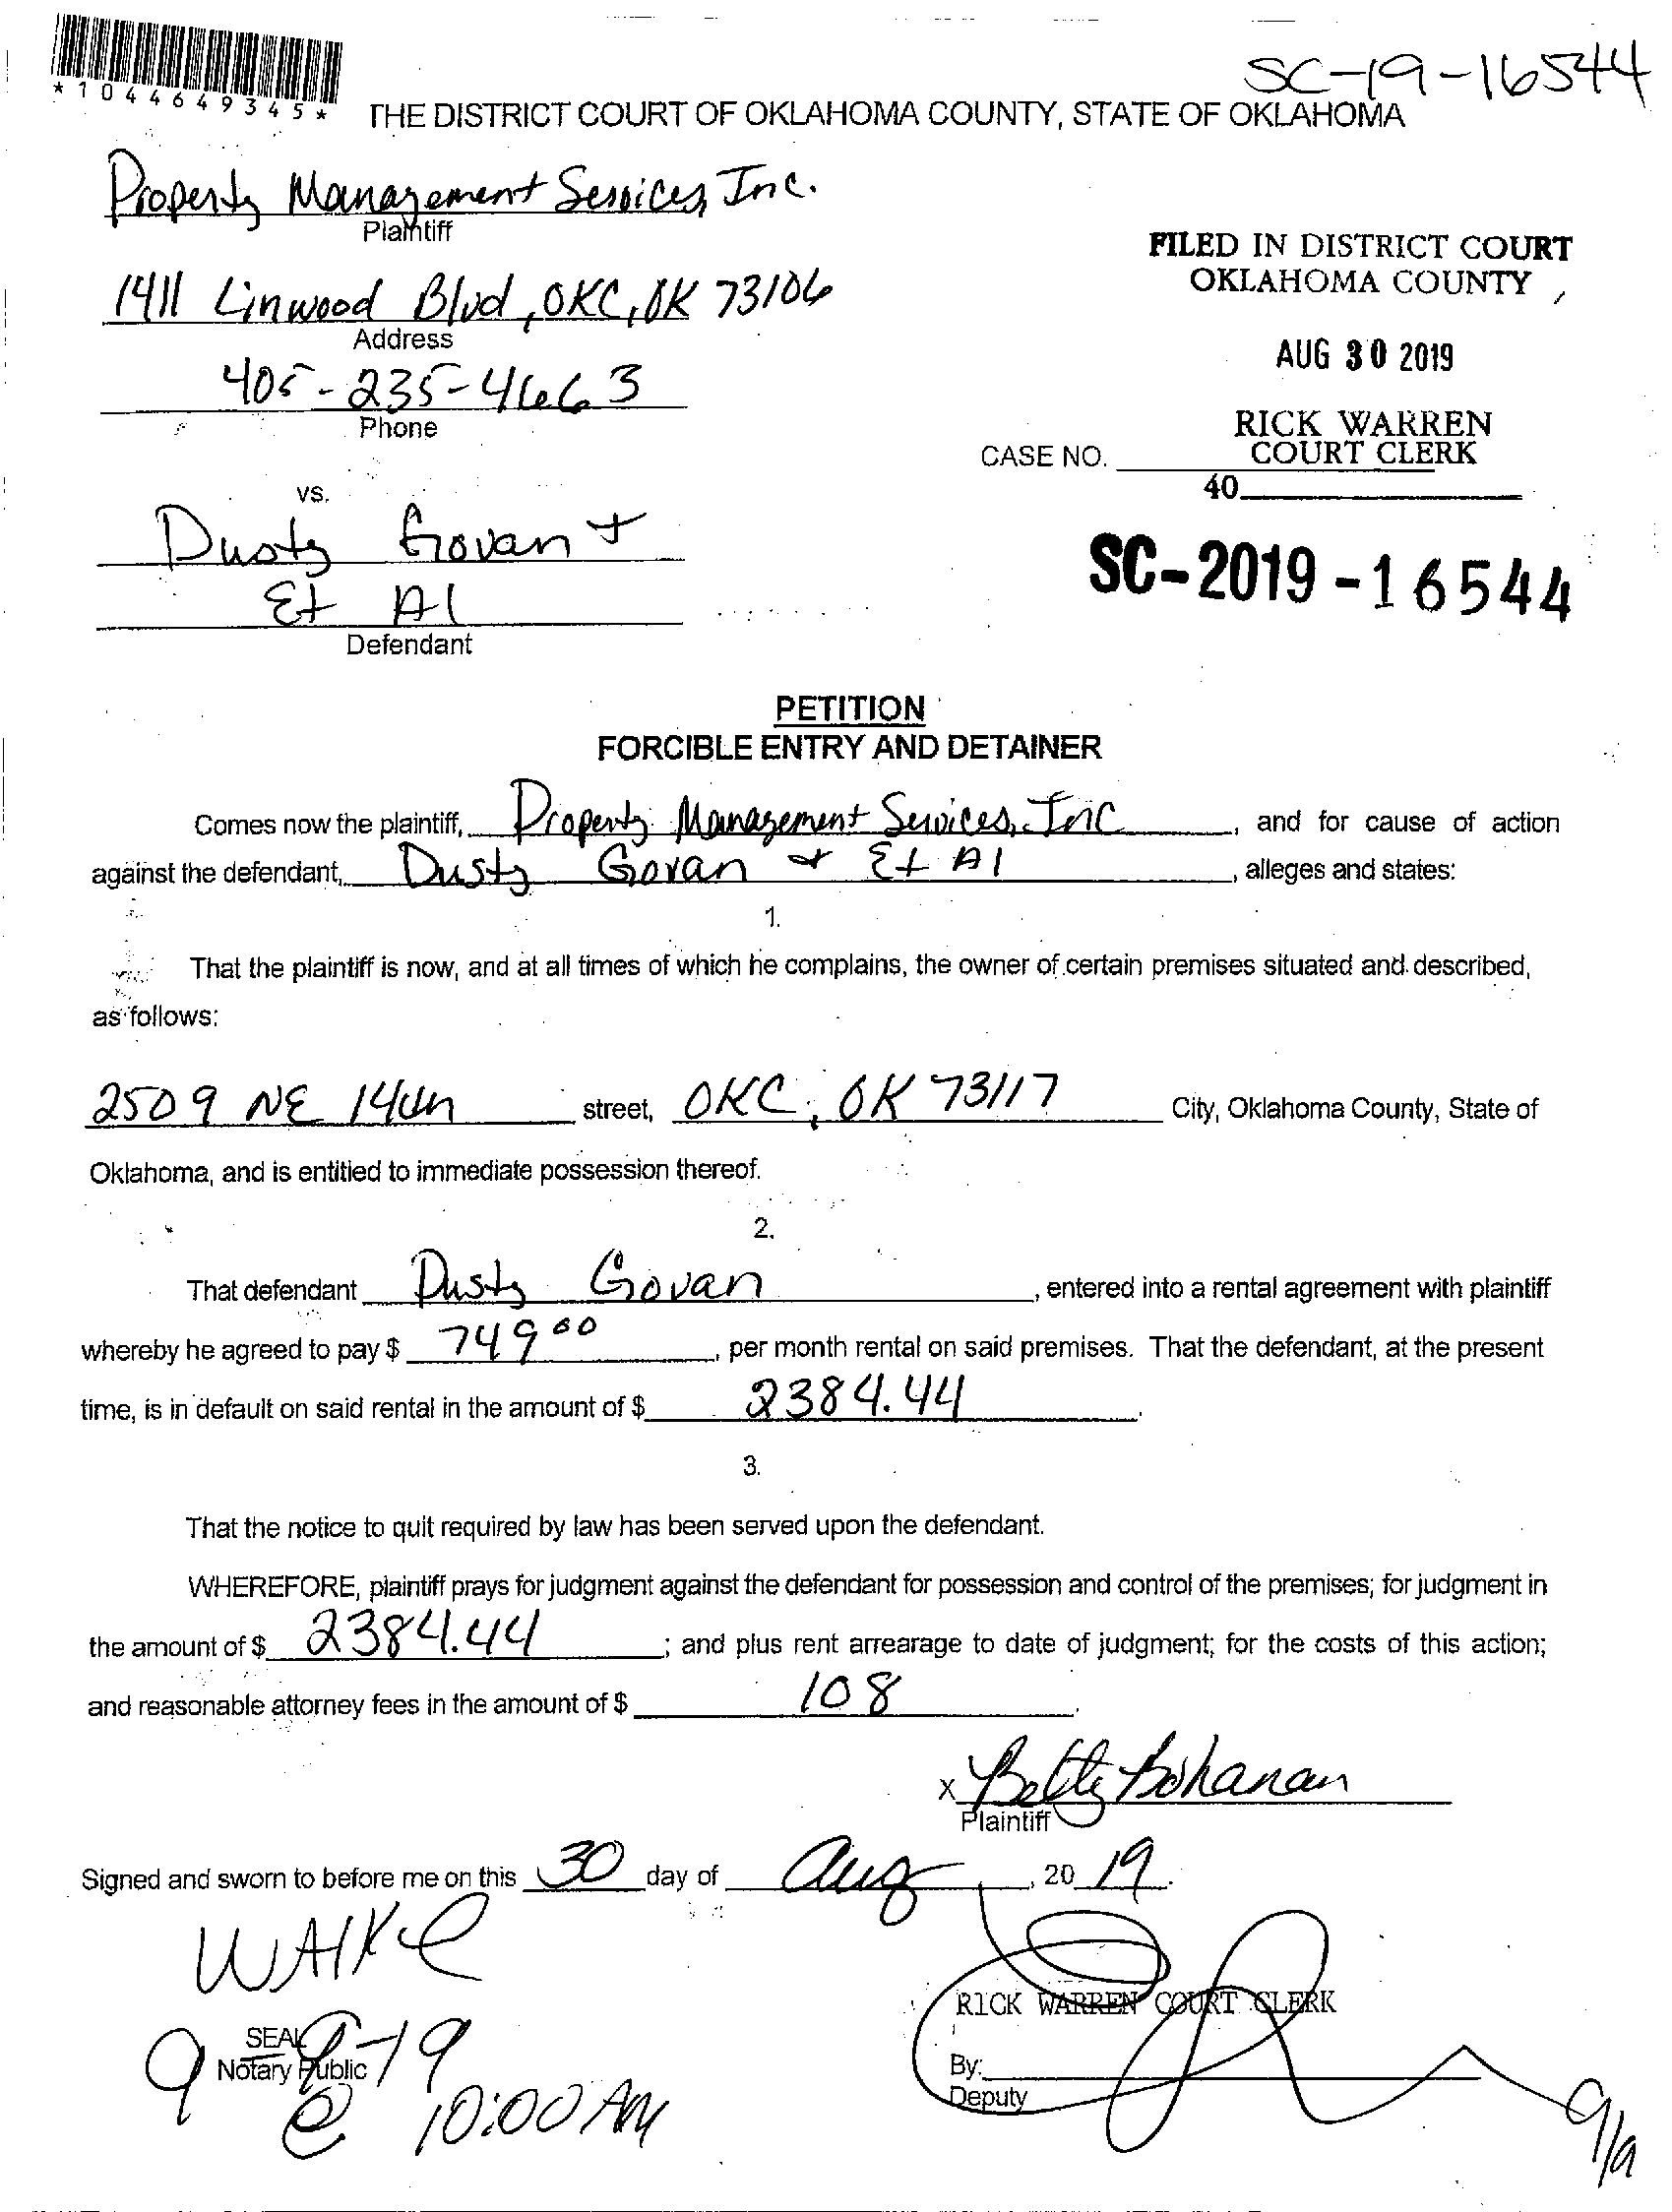 SC-19-16544
*1044649345*
THE DISTRICT COURT OF OKLAHOMA COUNTY, STATE OF OKLAHOMA
Property Management Services, Inc.
Plaintiff
FILED IN DISTRICT COURT
OKLAHOMA COUNTY
1411 Linwood Blvd, OKC, OK 73106
Address
AUG 30 2019
405-235-4663
Phone
RICK WARREN
COURT CLERK
CASE NO.
40
vs.
Dusty Govan +
Et Al
Defendant
SC-2019-16544
PETITION
FORCIBLE ENTRY AND DETAINER
Comes now the plaintiff, Property Management Services, Inc , and for cause of action
against the defendant, Dusty Govan + Et Al , alleges and states:
1.
That the plaintiff is now, and at all times of which he complains, the owner of certain premises situated and described,
as follows:
2509 NE 14th street, OKC, OK 73117 City, Oklahoma County, State of
Oklahoma, and is entitled to immediate possession thereof.
2.
That defendant Dusty Govan , entered into a rental agreement with plaintiff
whereby he agreed to pay $ 749 00 , per month rental on said premises. That the defendant, at the present
time, is in default on said rental in the amount of $ 2384.44 .
3.
That the notice to quit required by law has been served upon the defendant.
WHEREFORE, plaintiff prays for judgment against the defendant for possession and control of the premises; for judgment in
the amount of $ 2384.44 ; and plus rent arrearage to date of judgment; for the costs of this action;
and reasonable attorney fees in the amount of $ 108 .
X Betty Bohanan
Plaintiff
Signed and sworn to before me on this 30 day of Aug , 20 19 .
RICK WARREN COURT CLERK
SEAL
Notary Public
9-9-19
@ 10:00 AM
By:
Deputy
9/9